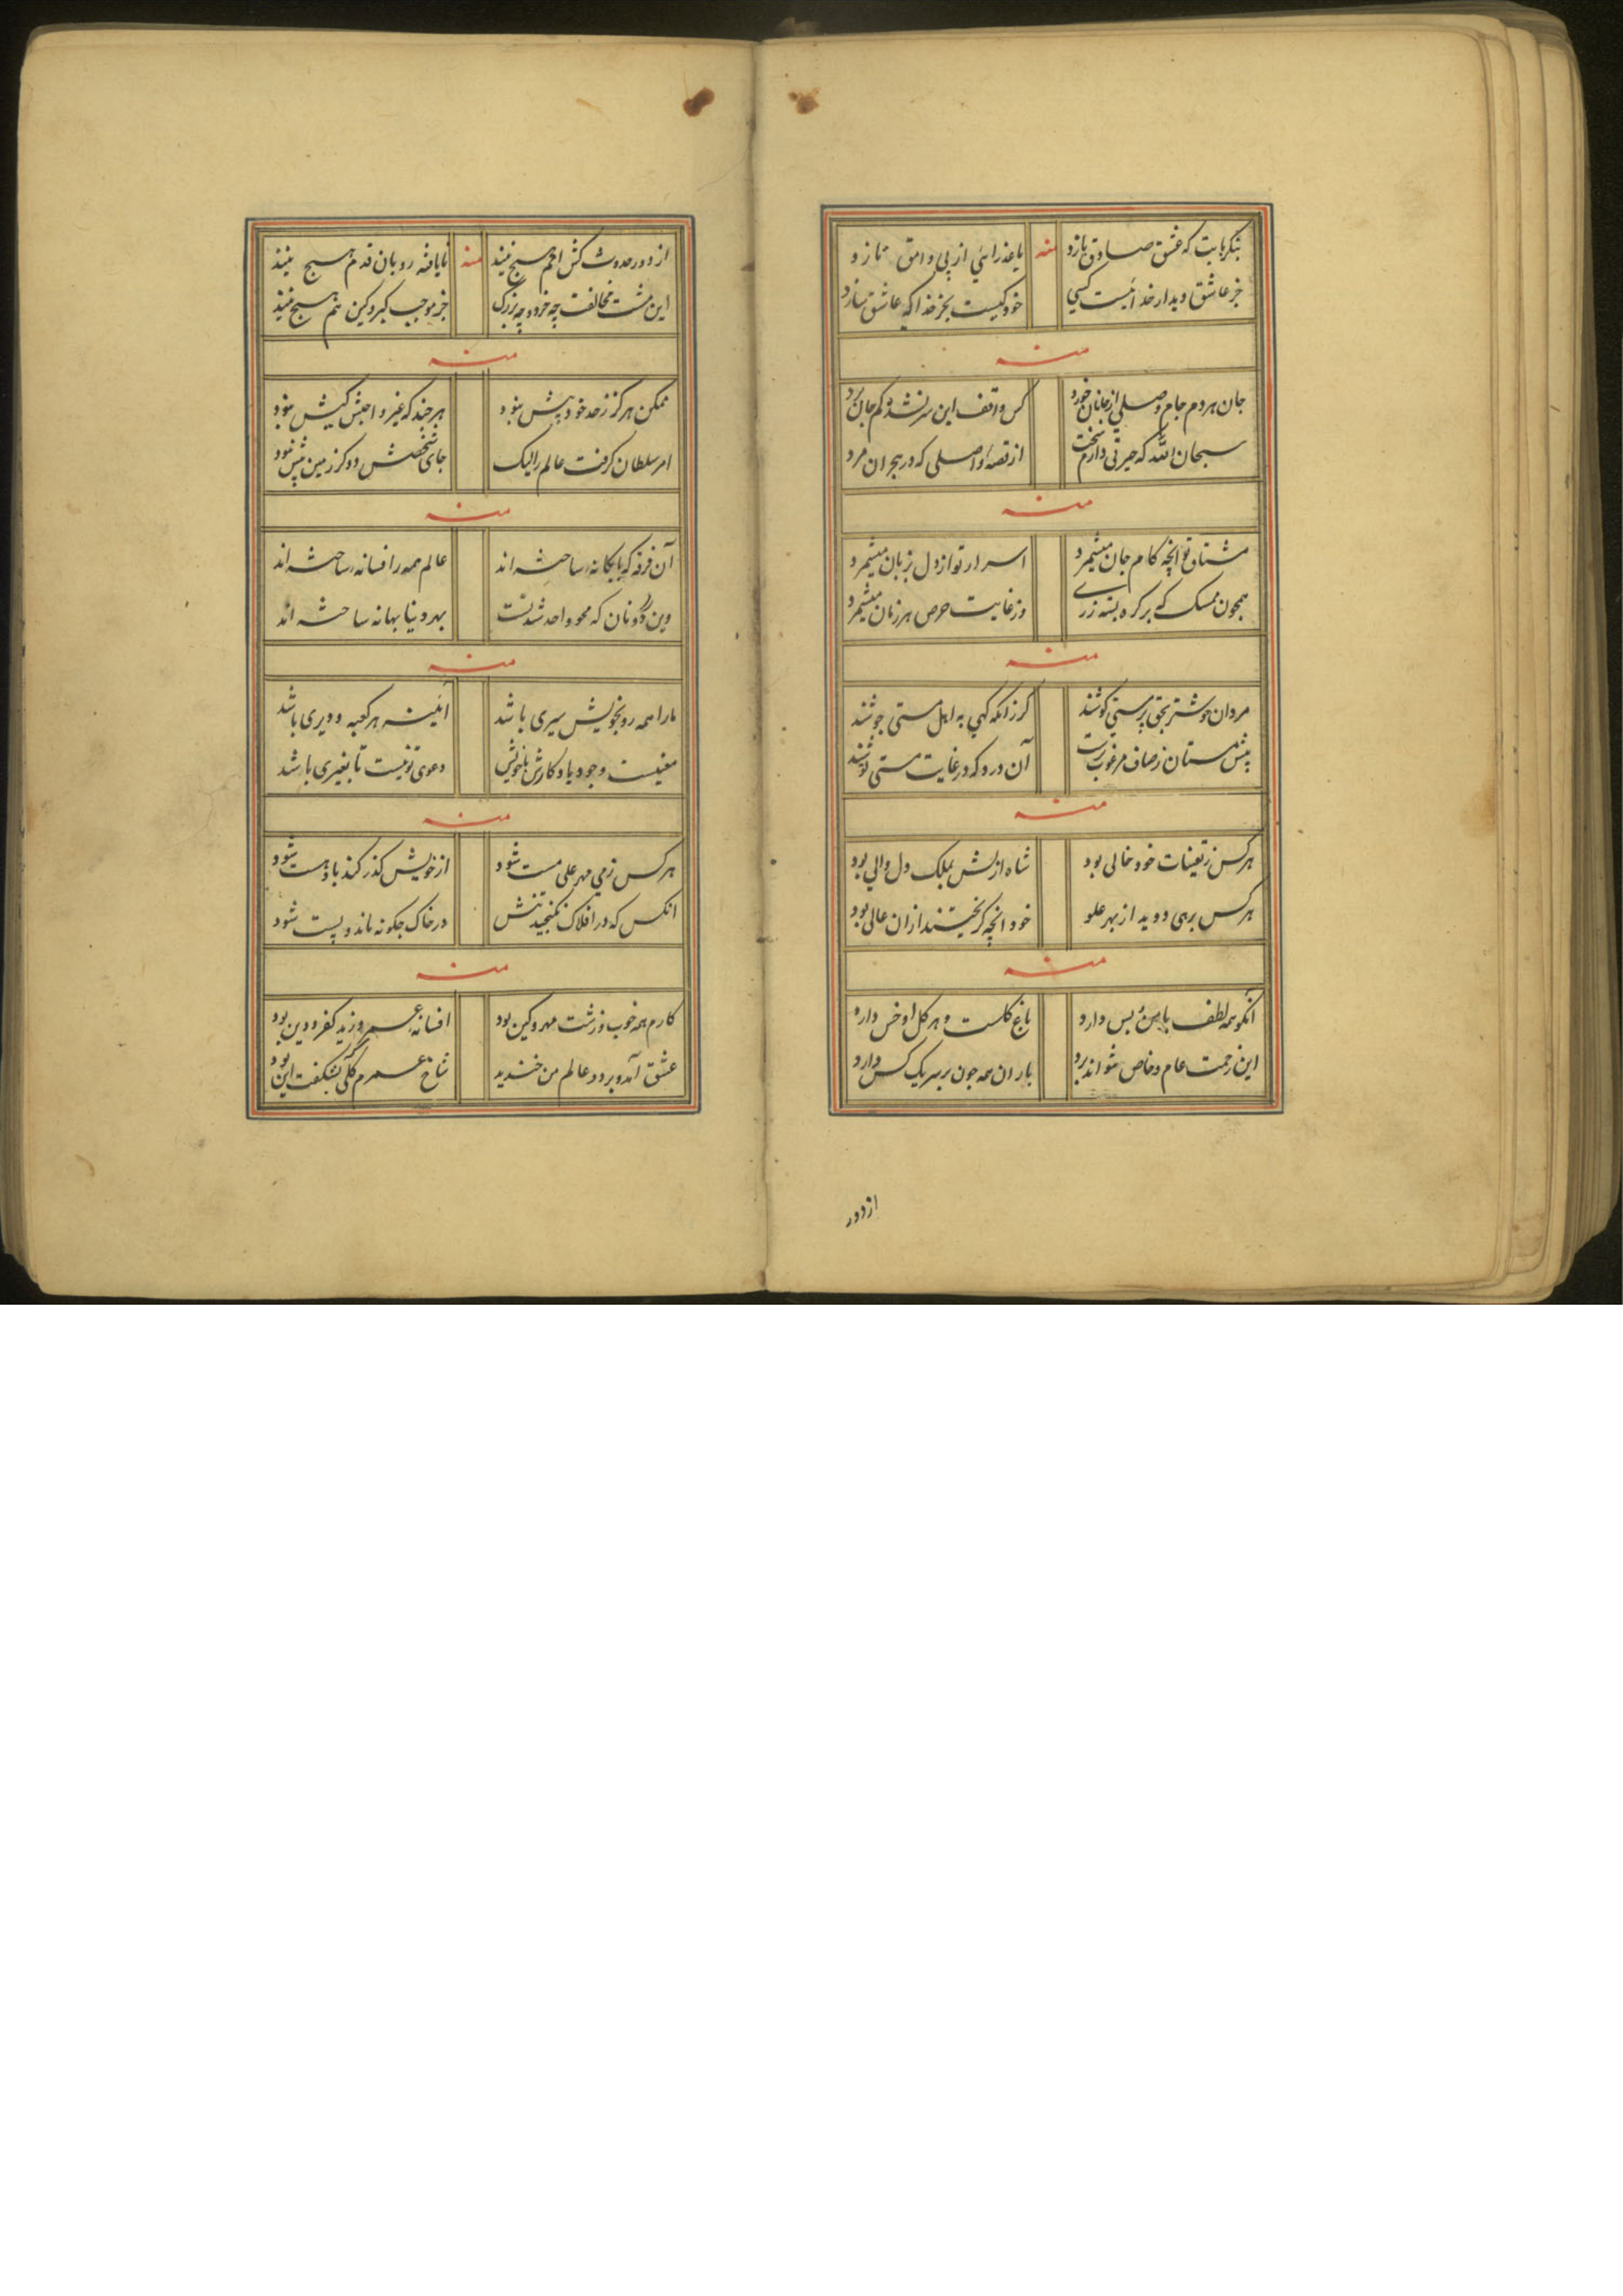 بنکر بابت که عشق صادق بازد منه یا عذرائی از پی وامق تازد
جز عاشق دیدار خدا نیست کسی خود کیست بجز خدا که عاشق سازد
منه
جان هر دم جام وصلی از جانان خورد کس واقف این سر نشد کم جان برد
سبحان الله که حیرتی دارم سخت از قصه واصلی که در هجران مرد
منه
مشتاق تو انچه کام جان میشمرد اسرار تو از دل بزبان میشمرد
همچون ممسک که بر کره بسته زرے وز غایت حرص هر زمان میشمرد
منه
مردان خوشتر بحق پرستی کوشند کر زانکه کهی به اهل مستی جوشند
پیش مستان ز صاف مرغوبترست آن درد که در غایت مستی نوشند
منه
هر کس ز تعینات خود خالی بود شاه ازلش بملک دل والی بود
هر کس برهی دوید از بهر علو خود انچه کریختند ازان عالی بود
منه
آنکو همه لطف با من بس دارد باغ کلست و هر کل او خس دارد
این رحمت عام و خاص نتواند برد باران همه جون بر سر یک کس دارد
از دور
از دور حدوث کش اهم هیچ نیند منه نایافته رو بان قدم هیچ نیند
این مشت مخالفت چه خرد و چه بزرک جز موجب کبر و کین هم هیچ نیند
منه
ممکن هرکز ز حد خود پیش نبود هر چند که غیر واجبش کیش نبود
امر سلطان کرفت عالم را لیک جای شخصش دو کز زمین بیش نبود
منه
آن فرقه که با یکانه ساخته اند عالم همه را فسانه ساخته اند
وین دونان که محو واحد شدنست بهر دنیا بهانه ساخته اند
منه
ما را همه رو بخویش سیری باشد آئینه هر کعبه و دیری باشد
معنیست وجود با و کارش با خویش دعوی تو نیست تا بغیری باشد
منه
هر کس ز می مهر علی مست شود از خویش کذر کند باو هست شود
انکس که در افلاک نکنجید تنش در خاک چکونه ماند و پست شود
منه
کارم همه خوب و زشت مهر و کین بود افسانه عمر و زید کفر و دین بود
عشق آمد و بر دو عالم من خندید شاخ عمرم کلی شکفت این بود